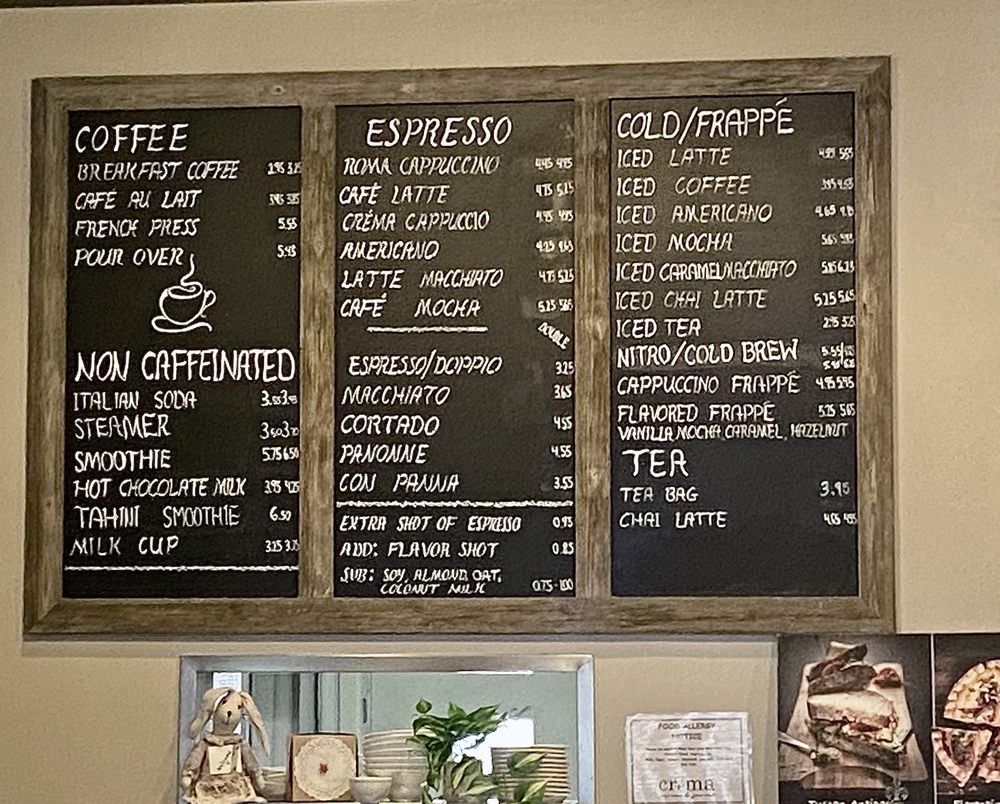 COFFEE
BREAKFAST COFFEE
CAFÉ AU LAIT
FRENCH PRESS 5.55
POUR OVER 5.45
NON CAFFEINATED
ITALIAN SODA
STEAMER
SMOOTHIE 5.75 6.50
HOT CHOCOLATE MILK 3.95 4.25
TAHINI SMOOTHIE 6.50
MILK CUP 3.25 3.75
ESPRESSO
ROMA CAPPUCCINO 4.45 4.95
CAFÉ LATTE 4.75 5.25
CRÉMA CAPPUCCIO 4.45 4.95
AMERICANO 4.25 4.65
LATTE MACCHIATO 4.75 5.25
CAFÉ MOCHA 5.25 5.65
DOUBLE
ESPRESSO/DOPPIO 3.25
MACCHIATO 3.65
CORTADO 4.55
PANONNE 4.55
CON PANNA 3.55
EXTRA SHOT OF ESPRESSO 0.95
ADD: FLAVOR SHOT 0.85
SUB: SOY, ALMOND, OAT,
COCONUT MILK 0.75-1.00
COLD/FRAPPÉ
ICED LATTE
ICED COFFEE
ICED AMERICANO 4.65
ICED MOCHA 5.65
ICED CARAMEL MACCHIATO 5.85 6.25
ICED CHAI LATTE 5.25 5.65
ICED TEA 2.95 3.25
NITRO/COLD BREW
CAPPUCCINO FRAPPÉ 4.95 5.95
FLAVORED FRAPPÉ 5.25 5.65
VANILLA, MOCHA, CARAMEL, HAZELNUT
TEA
TEA BAG 3.95
CHAI LATTE
FOOD ALLERGY
NOTICE
créma